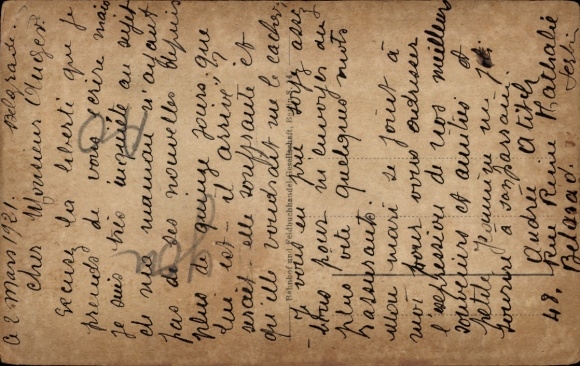 le 2 Mars 1921. Belgrade.
Cher Monsieur
Excusez la liberté que je
prends de vous écrire mais
je suis très inquiète au sujet
de ma maman n'ayant
pas de ses nouvelles depuis
plus de quinze jours. que
lui est-il arrivé?
serait-elle souffrante et
qu'elle voudrait me le cacher,
je vous en prie soyez assez
bons pour m'envoyer au
plus vite quelques mots
rassurants.
Mon mari se joint à
moi pour vous adresser
l'expression de nos meilleurs
souvenirs et amitiés et
petite
sourire à son parrain.
Andrée
48. Rue Reine Nathalie
Belgrad. Serbie
Bahnhof und Feldbuchhandel Gesellschaft, Berlin